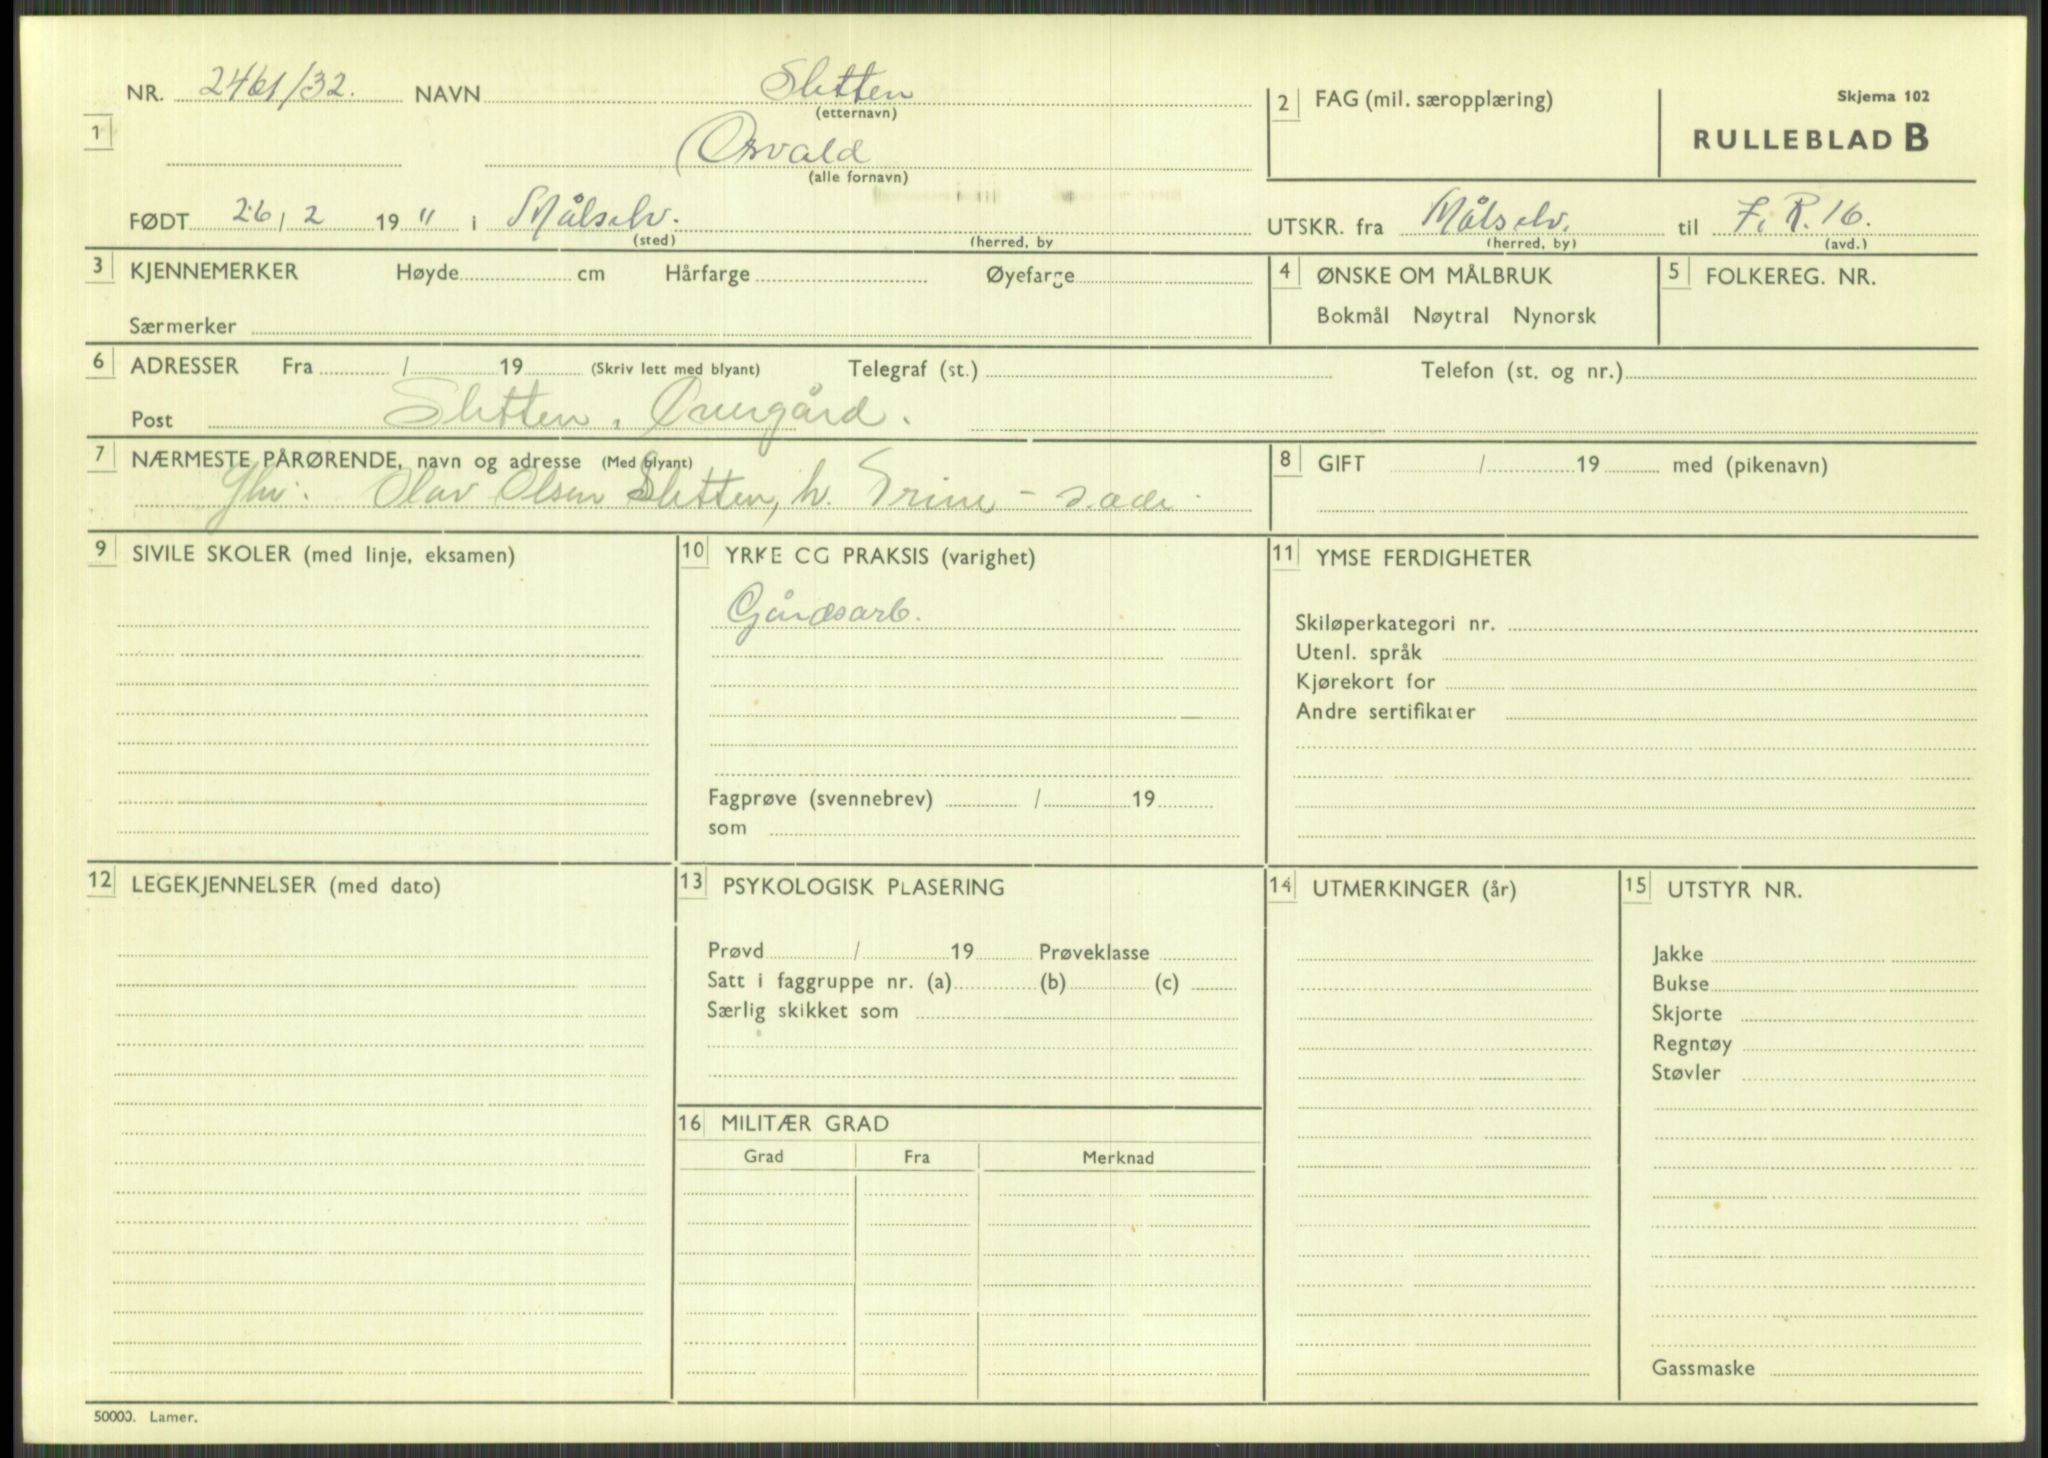 NR. 2461/32. NAVN Sletten
(etternavn)
2 FAG (mil. særopplæring)
Skjema 102
RULLEBLAD B
1
Osvald
(alle fornavn)
FØDT 26 / 2 19 11 i Målselv.
(sted) (herred, by
UTSKR. fra Målselv. til F.R. 16.
(herred, by) (avd.)
3 KJENNEMERKER Høyde cm Hårfarge Øyefarge
Særmerker
4 ØNSKE OM MÅLBRUK
Bokmål Nøytral Nynorsk
5 FOLKEREG. NR.
6 ADRESSER Fra / 19 (Skriv lett med blyant) Telegraf (st.) Telefon (st. og nr.)
Post Sletten, Øvergård.
7 NÆRMESTE PÅRØRENDE, navn og adresse (Med blyant)
Olav Olsen Sletten, h. Trine –
8 GIFT / 19 med (pikenavn)
9 SIVILE SKOLER (med linje, eksamen)
10 YRKE CG PRAKSIS (varighet)
Gårdsarb.
Fagprøve (svennebrev) / 19
som
11 YMSE FERDIGHETER
Skiløperkategori nr.
Utenl. språk
Kjørekort for
Andre sertifikater
12 LEGEKJENNELSER (med dato)
13 PSYKOLOGISK PLASERING
Prøvd / 19 Prøveklasse
Satt i faggruppe nr. (a) (b) (c)
Særlig skikket som
14 UTMERKINGER (år)
15 UTSTYR NR.
Jakke
Bukse
Skjorte
Regntøy
Støvler
Gassmaske
16 MILITÆR GRAD
Grad Fra Merknad
50000. Lamer.